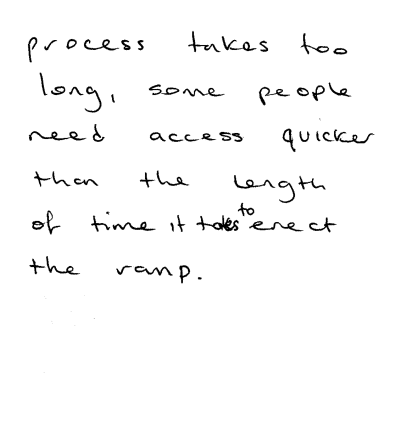 process takes too
long, some people
need access quicker
than the length
of time it takes to erect
the ramp.